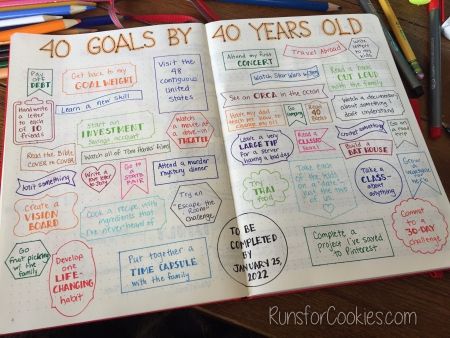 40 GOALS BY 40 YEARS OLD
Pay
OFF
DEBT
Get back to my
GOAL WEIGHT
Visit the
48
contiguous
united
states
Learn a new skill
Hand write
a letter
to each
of 10
friends
Start an
INVESTMENT
Savings account
Watch a
movie at
a drive-in
THEATER
Read the Bible
COVER to COVER
Watch all of Tom Hanks' films
knit something
Go to a
STATE
FAIR
Attend a murder
mystery dinner
Create a
VISION
BOARD
Cook a recipe with
ingredients that
I've never heard of
Try an
Escape the
Room
challenge
Go
fruit picking
w/ the family
Develop
one
LIFE-
CHANGING
habit
Put together a
TIME CAPSULE
with the family
Attend my first
CONCERT
Travel Abroad
Write
letters to
my kids
Watch Star Wars
Read a book
OUT LOUD
with the family
See an ORCA in the ocean
Go
Read
40
books
Watch a documentary
about something I
don't understand
Leave a very
LARGE TIP
for a server
having a bad day
Read a
CLASSIC
novel
Crochet something
Build a
BAT HOUSE
Try
THAI
food
Take each
of the kids
on a date,
just the two
of us
Take a
CLASS
about
anything
Grow
a
vegetable
TO BE
COMPLETED
BY
JANUARY 25,
2022
Complete a
project I've saved
to Pinterest
Commit
to a
30-DAY
challenge
RunsforCookies.com